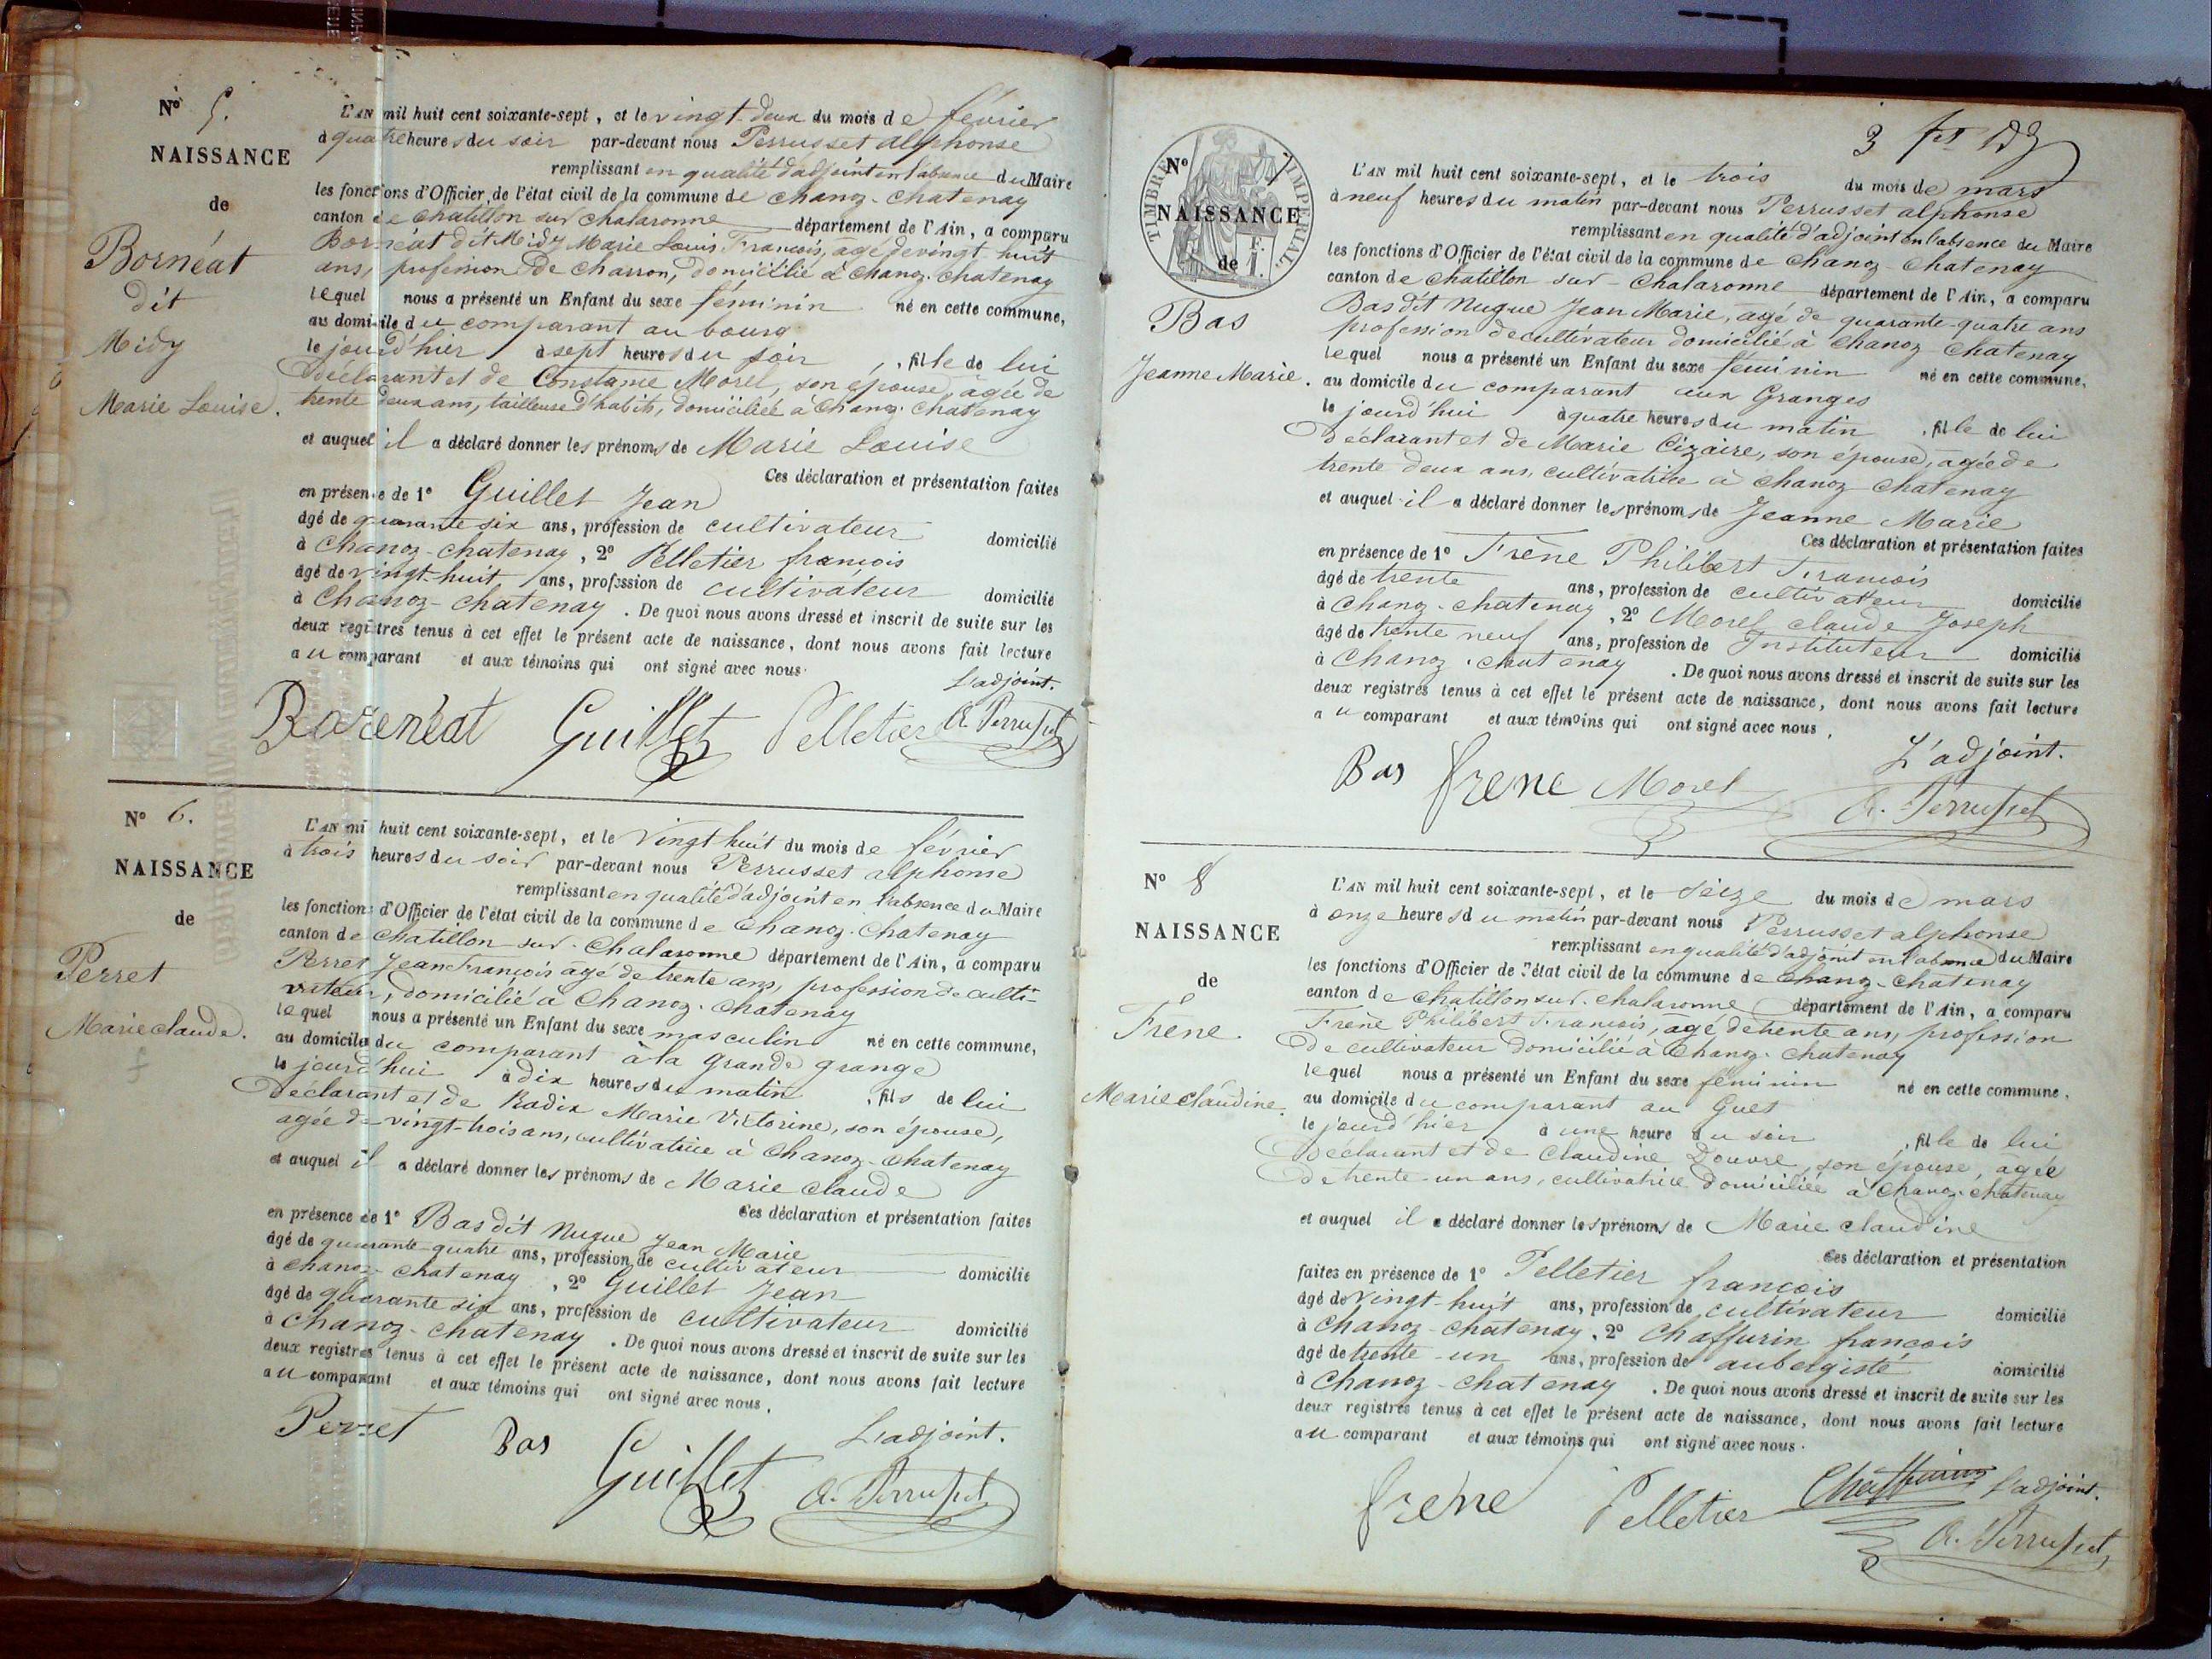 N° 5.
NAISSANCE
de
Bornéat
dit
Midy
Marie Louise.
L'AN mil huit cent soixante-sept, et le vingt-deux du mois de février
à quatre heures du soir par-devant nous Perrusset alphonse
remplissant en qualité d'adjoint en l'absence du Maire
les fonctions d'Officier de l'état civil de la commune de Chanoz-Chatenay
canton de Chatillon sur Chalaronne département de l'Ain, a comparu
Bornéat dit Midy Marie Louis François, agé de vingt huit
ans, profession de Charron, domicilié à Chanoz-Chatenay
lequel nous a présenté un Enfant du sexe féminin né en cette commune,
au domicile du comparant au bourg
le jourd'hier à sept heures du soir, fille de lui
Déclarant et de Constance Morel, son épouse, agée de
trente deux ans, tailleuse d'habits, domiciliée à Chanoz-Chatenay
et auquel il a déclaré donner les prénoms de Marie Louise
Ces déclaration et présentation faites
en présence de 1° Guillet Jean
âgé de quarante six ans, profession de cultivateur domicilié
à Chanoz-Chatenay, 2° Pelletier françois
âgé de vingt-huit ans, profession de cultivateur domicilié
à Chanoz-Chatenay. De quoi nous avons dressé et inscrit de suite sur les
deux registres tenus à cet effet le présent acte de naissance, dont nous avons fait lecture
au comparant et aux témoins qui ont signé avec nous.
L'adjoint.
Guillet Pelletier A. Perrusset
N° 6.
NAISSANCE
de
Perret
Marie claude.
L'AN mil huit cent soixante-sept, et le Vingt huit du mois de février
à trois heures du soir par-devant nous Perrusset alphonse
remplissant en qualité d'adjoint en l'absence du Maire
les fonctions d'Officier de l'état civil de la commune de Chanoz-Chatenay
canton de Chatillon sur-Chalaronne département de l'Ain, a comparu
Perret Jean François âgé de trente ans, profession de culti-
vateur, domicilié à Chanoz-Chatenay
lequel nous a présenté un Enfant du sexe masculin né en cette commune,
au domicile du comparant à la Grande grange
le jourd'hui à dix heures du matin, fils de lui
Déclarant et de Radix Marie Victorine, son épouse,
agée de vingt-trois ans, cultivatrice à Chanoz-Chatenay
et auquel il a déclaré donner les prénoms de Marie claude
Ces déclaration et présentation faites
en présence de 1° Bas dit Nugue Jean Marie
âgé de quarante-quatre ans, profession de cultivateur domicilié
à Chanoz-Chatenay, 2° Guillet Jean
âgé de quarante six ans, profession de cultivateur domicilié
à Chanoz-Chatenay. De quoi nous avons dressé et inscrit de suite sur les
deux registres tenus à cet effet le présent acte de naissance, dont nous avons fait lecture
au comparant et aux témoins qui ont signé avec nous.
L'adjoint.
Perret Bas Guillet A. Perrusset
TIMBRE IMPERIAL
N° 7
NAISSANCE
de
Bas
Jeanne Marie.
L'AN mil huit cent soixante-sept, et le trois du mois de mars
à neuf heures du matin par-devant nous Perrusset alphonse
remplissant en qualité d'adjoint en l'absence du Maire
les fonctions d'Officier de l'état civil de la commune de Chanoz Chatenay
canton de Chatillon sur-Chalaronne département de l'Ain, a comparu
Bas dit Nugue Jean Marie, agé de quarante-quatre ans
profession de cultivateur domicilié à Chanoz Chatenay
lequel nous a présenté un Enfant du sexe féminin né en cette commune,
au domicile du comparant aux Granges
le jourd'hui à quatre heures du matin, fille de lui
Déclarant et de Marie Cizaire, son épouse, agée de
trente deux ans, cultivatrice à Chanoz Chatenay
et auquel il a déclaré donner les prénoms de Jeanne Marie
Ces déclaration et présentation faites
en présence de 1° Frène Philibert François
âgé de trente ans, profession de cultivateur domicilié
à Chanoz-Chatenay, 2° Morel claude Joseph
âgé de trente neuf ans, profession de Instituteur domicilié
à Chanoz-Chatenay. De quoi nous avons dressé et inscrit de suite sur les
deux registres tenus à cet effet le présent acte de naissance, dont nous avons fait lecture
au comparant et aux témoins qui ont signé avec nous.
L'adjoint.
Bas frene Morel A. Perrusset
N° 8
NAISSANCE
de
Frène
Marie Claudine.
L'AN mil huit cent soixante-sept, et le Seize du mois de mars
à onze heures du matin par-devant nous Perrusset alphonse
remplissant en qualité d'adjoint en l'absence du Maire
les fonctions d'Officier de l'état civil de la commune de Chanoz-Chatenay
canton de Chatillon sur-chalaronne département de l'Ain, a comparu
Frène Philibert François, agé de trente ans, profession
de cultivateur domicilié à Chanoz-Chatenay
lequel nous a présenté un Enfant du sexe féminin né en cette commune,
au domicile du comparant au Guet
le jourd'hier à une heure du soir, fille de lui
Déclarant et de Claudine Douvre, son épouse, agée
de trente-un ans, cultivatrice domiciliée à Chanoz-Chatenay
et auquel il a déclaré donner les prénoms de Marie claudine
Ces déclaration et présentation
faites en présence de 1° Pelletier françois
âgé de vingt-huit ans, profession de cultivateur domicilié
à Chanoz-Chatenay, 2° Chaffurin françois
âgé de trente-un ans, profession de aubergiste domicilié
à Chanoz-Chatenay. De quoi nous avons dressé et inscrit de suite sur les
deux registres tenus à cet effet le présent acte de naissance, dont nous avons fait lecture
au comparant et aux témoins qui ont signé avec nous.
frène Pelletier Chaffurin L'adjoint.
A. Perrusset